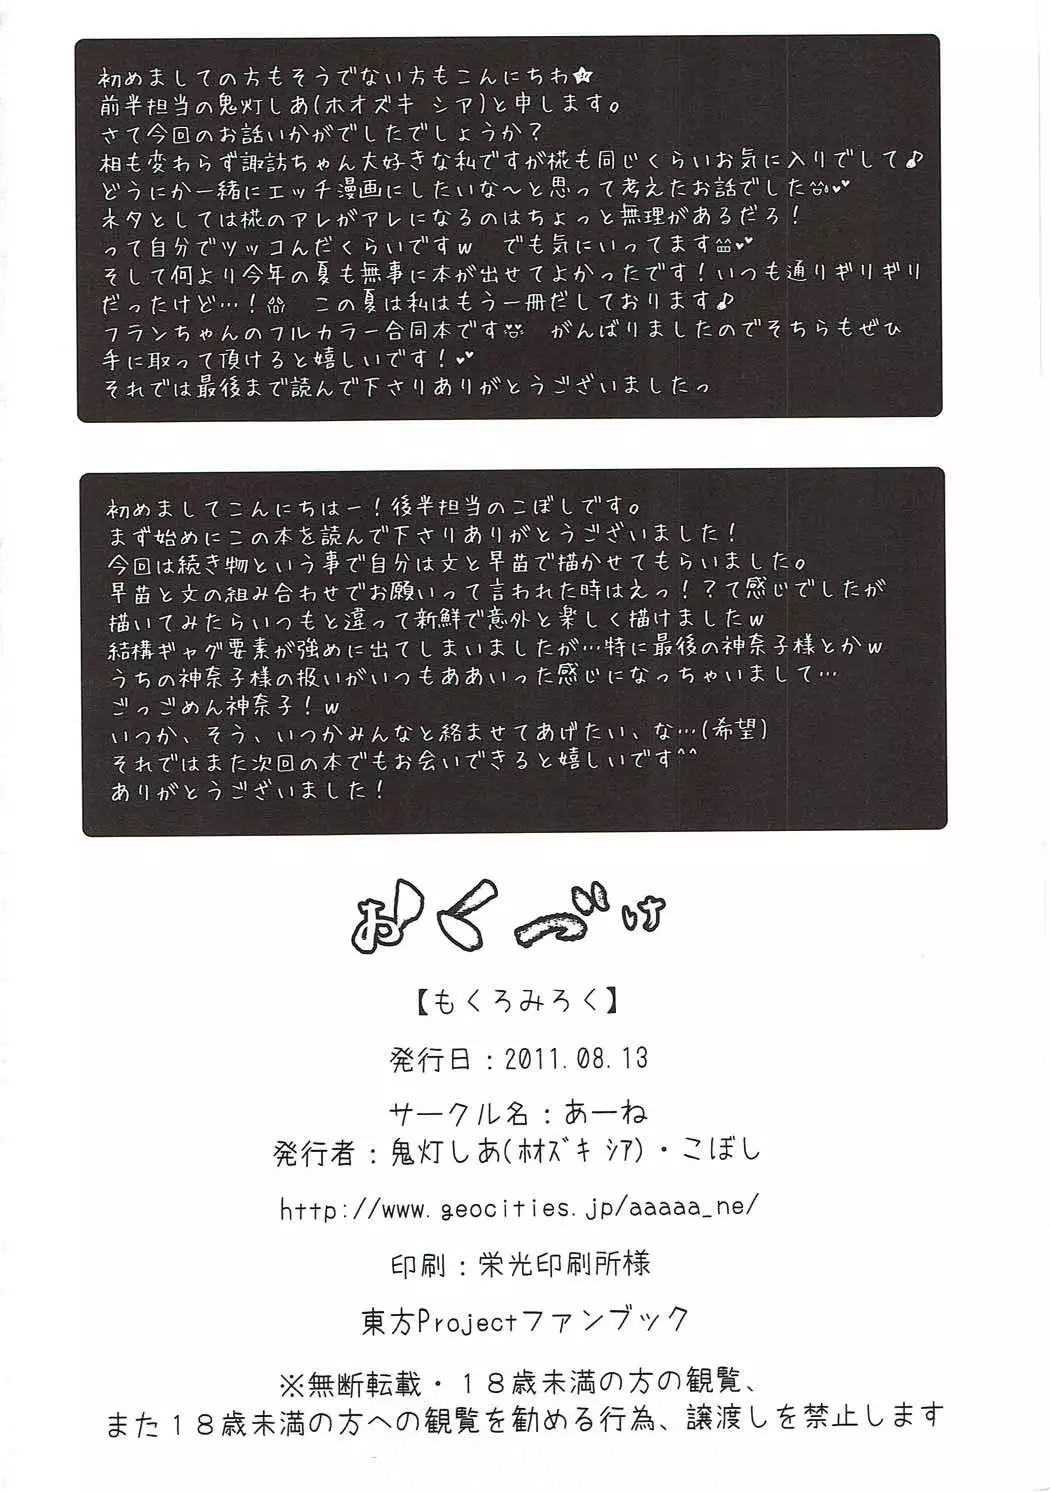 初めましての方もそうでない方もこんにちわ★
前半担当の鬼灯しあ(ホオズキ シア)と申します。
さて今回のお話いかがでしたでしょうか?
相も変わらず諏訪ちゃん大好きな私ですが椛も同じくらいお気に入りでして♪
どうにか一緒にエッチ漫画にしたいな～と思って考えたお話でした
ネタとしては椛のアレがアレになるのはちょっと無理があるだろ!
って自分でツッコんだくらいですw でも気にいってます
そして何より今年の夏も無事に本が出せてよかったです!いつも通りギリギリ
だったけど…! この夏は私はもう一冊だしております♪
フランちゃんのフルカラー合同本です がんばりましたのでそちらもぜひ
手に取って頂けると嬉しいです!
それでは最後まで読んで下さりありがとうございましたっ
初めましてこんにちはー!後半担当のこぼしです。
まず始めにこの本を読んで下さりありがとうございました!
今回は続き物という事で自分は文と早苗で描かせてもらいました。
早苗と文の組み合わせでお願いって言われた時はえっ!?て感じでしたが
描いてみたらいつもと違って新鮮で意外と楽しく描けましたw
結構ギャグ要素が強めに出てしまいましたが…特に最後の神奈子様とかw
うちの神奈子様の扱いがいつもああいった感じになっちゃいまして…
ごっごめん神奈子!w
いつか、そう、いつかみんなと絡ませてあげたい、な…(希望)
それではまた次回の本でもお会いできると嬉しいです^^
ありがとうございました!
おくづけ
【もくろみろく】
発行日:2011.08.13
サークル名:あーね
発行者:鬼灯しあ(ﾎｵｽﾞｷ ｼｱ)・こぼし
http://www.geocities.jp/aaaaa_ne/
印刷:栄光印刷所様
東方Projectファンブック
※無断転載・１８歳未満の方の観覧、
また１８歳未満の方への観覧を勧める行為、譲渡しを禁止します